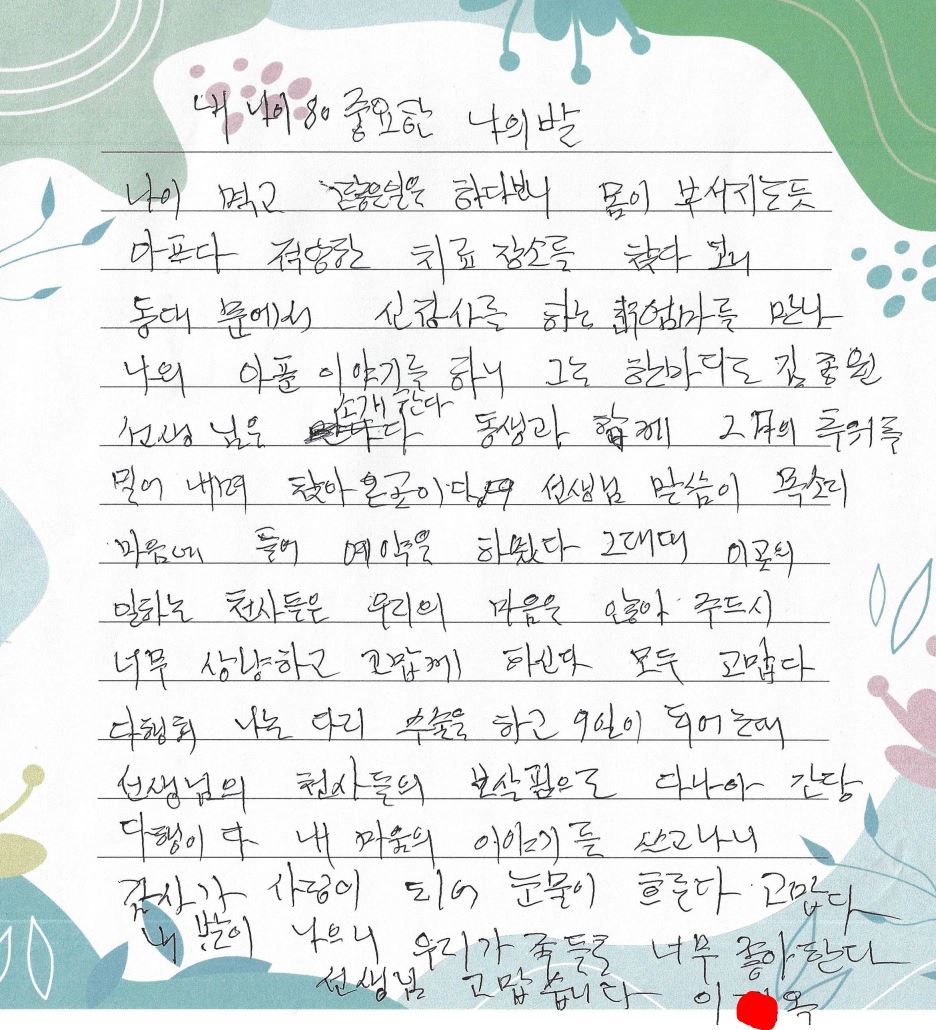 내 나이 80 중요한 나의 발
나이 먹고 하다보니 몸이 부서지는듯
아프다 적당한 치료 장소를 찾다
동대 문에서 하는 만나
나의 아픈 이야기를 하니 그는 한마디로 김 종원
소개 준다
선생 님은 동생과 함께 추위를
밀어 내며 찾아 온곳이다 선생님 말씀이 목소리
마음에 들어 예약을 하였다 그대때 이곳의
일하는 천사들은 우리의 마음을 주드시
너무 상냥하고 고맙께 하신다 모두 고맙다
다행히 나는 다리 수술을 하고 9일이 되어 는데
선생님의 천사들의 보살핌으로 다나아 간당
다행이 다 내 마음의 이야기를 쓰고나니
감사가 사랑이 되어 눈물이 흐른다 고맙다
내 발이 나으니 우리가 족들로 너무 좋아한다
선생님 고맙습니다 이 옥